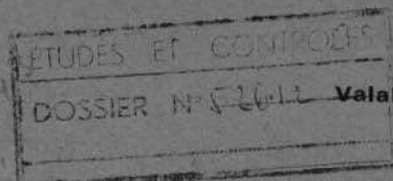 ETUDES ET CONTROLES
DOSSIER N° Valal